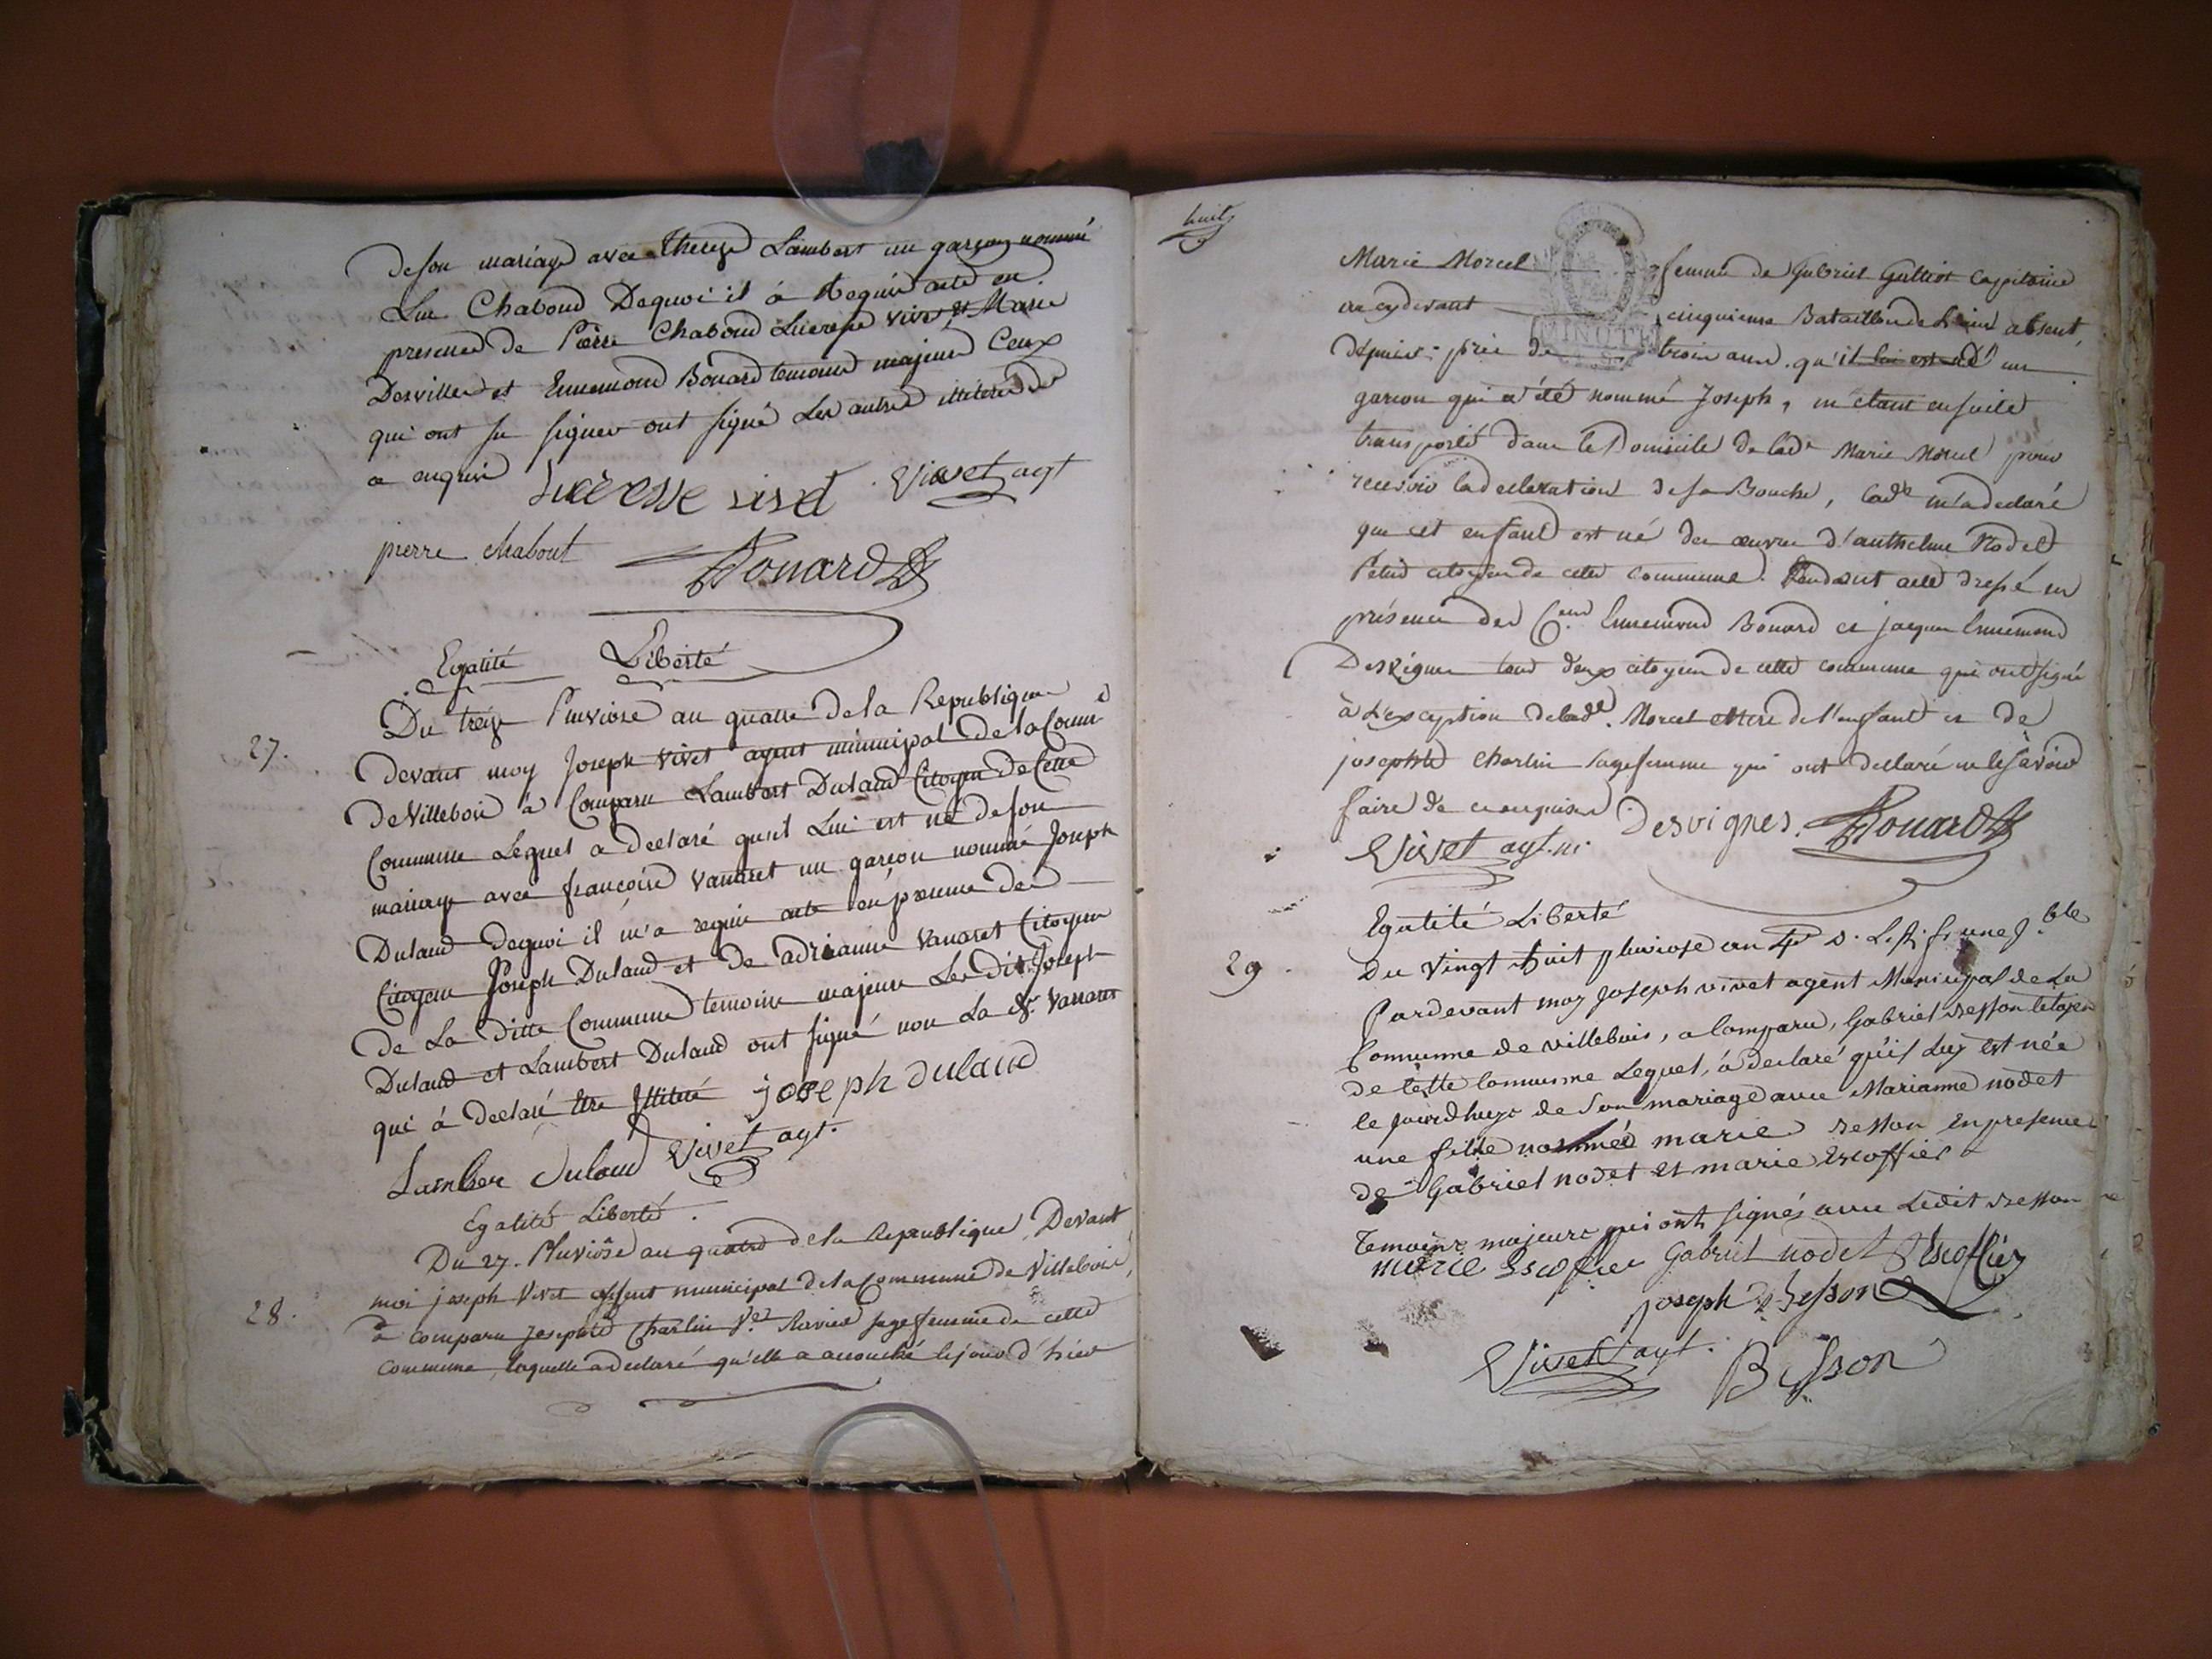 de son mariage avec Therese Lambert un garçon nommé
Luc Chaboud Dequoi il á Requis acte en
presence de Pierre Chaboud Lucresse Vivet Marie
Desvilles et Ennemond Bouard temoins majeurs Ceux
qui ont su signer ont signé Les autres illiterés de
ce enquis
Lucresse vivet Vivet agt
pierre chabout Bouard
Egalité Liberté
27. Du treize Pluviose an quatre de la Republique
devant moy Joseph Vivet agent municipal de la Comm.e
de Villebois à Comparu Lambert Dulaud Citoyen de Cette
Commune Lequel a declaré qu'il Lui est né de son
mariage avec francoise Vanaret un garçon nommé Joseph
Dulaud dequoi il m'a requis acte en presence des
Citoyens Joseph Dulaud et de adrianne Vanaret Citoyens
de La ditte Commune temoins majeurs Lesdits Joseph
Dulaud et Lambert Dulaud ont signé non La de. Vanaret
qui á declaré être Illiteré joseph dulaud
Lamber dulaud Vivet agt.
Egalité Liberté.
28. Du 27. Pluviôse an quatre de la Republique, Devant
moi joseph Vivet agent municipal de la Commune de Villebois,
à comparu josephte Charlin V.e Ravier sage femme de cette
commune, laquelle a declaré qu'elle a accouché le jour d'hier
huit
Marie Morcel femme de Gabriel Capitaine
au cydevant cinquieme Bataillon de l'ain absent,
depuis près de trois ans. qu'il lui est né un
garcon qui a été nommé Joseph, m'étant ensuite
transporté dans le Domicile de lad.e Marie Morcel pour
recevoir la declaration de sa Bouche, lad.e m'a declaré
que cet enfant est né des œuvres d'anthelme Nodet
citoyen de cette commune. dressé en
présence des C.ens Ennemond Bouard et jacques Ennemond
Desvignes tous deux citoyens de cette commune qui ont signé
à l'exception de lad.e Morcel Mere de l'enfant et de
josephte Charlin sagefemme qui ont declaré ne le savoir
faire de ce enquises. Desvignes. Bouard
Vivet agt. m.
Egalité Liberté
29. Du vingt huit pluviose an 4e D. L. R. f. une J.ble
Pardevant moy Joseph vivet agent Municipal de La
Commune de villebois, a Comparu, Gabriel Besson Citoyen
de Cette Commune Lequel, á declaré qu'il Luy est née
le jourdhuye de Son mariage avec Marianne nodet
une fille nommée marie Besson en presence
de Gabriel nodet et marie Escoffier
Temoins majeurs qui ont signés avec Ledit Besson
marie Escofier Gabriel nodet Escoffier
joseph Besson
Vivet agt. Besson